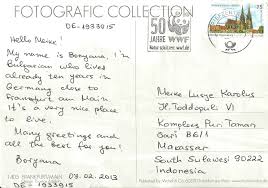 FOTOGRAFIC COLLECTION
DE-1933015
Hello Meike!
My name is Boryana, I'm
Bulgarian who lives
already ten years in
Germany close to
Frankfurt am Main.
It's a very nice place
to live.
Many greetings and
all the best for you!
Boryana
09.02.2013
DE-1933015
50
JAHRE
WWF
75
Meike Lusye Karolus
Jl. Toddopuli VI
Kompleks Puri Taman
Sari B6/1
Makassar
South Sulawesi 90222
Indonesia